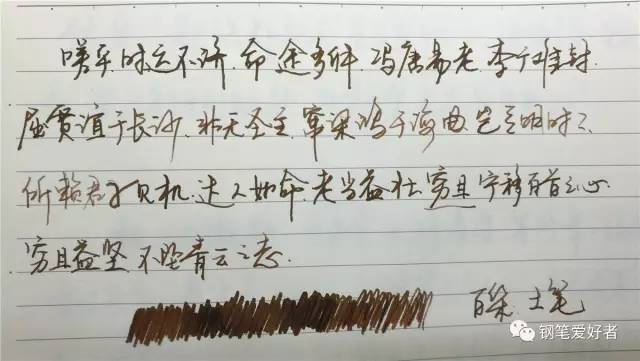 嗟乎.时运不济.命途多舛.冯唐易老.李广难封.
屈贾谊于长沙.非无圣主.窜梁鸿于海曲.岂乏明时?
所赖君子见机.达人知命.老当益壮.穷且宁移白首之心.
穷且益坚.不坠青云之志.
百乐.土笔
钢笔爱好者